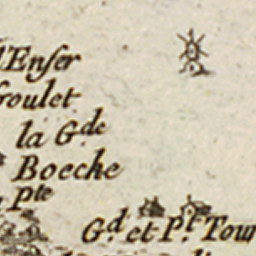 l'Enfer
la Gde
Boeche
Pte
Gd et Pt Tour